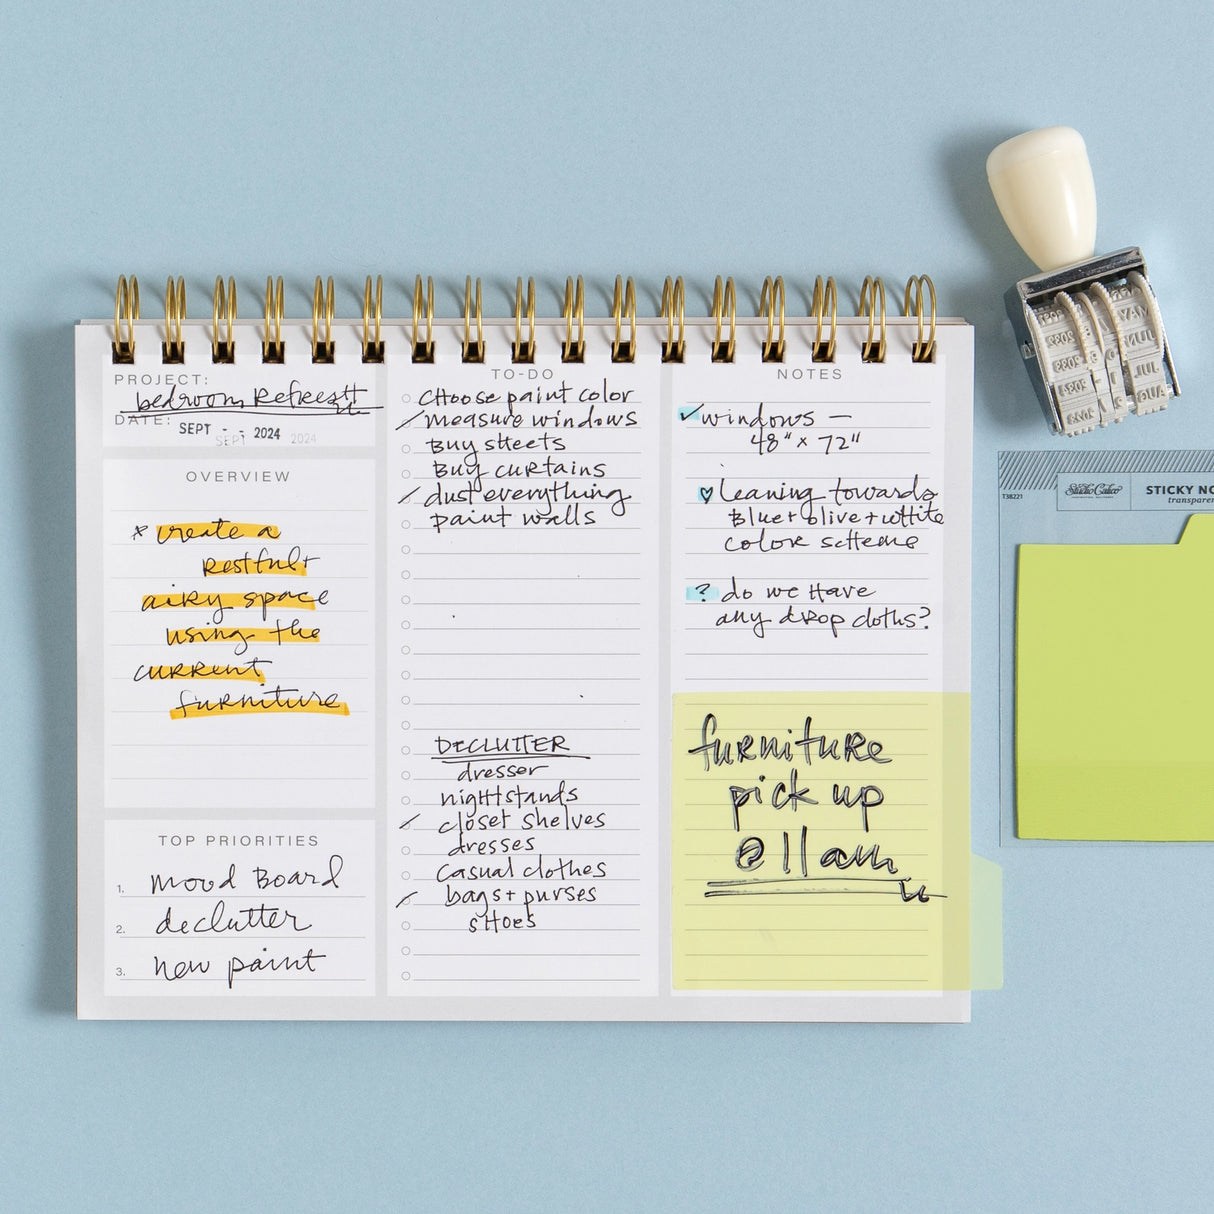 PROJECT:
bedroom Refresh
DATE: SEPT - - 2024
SEPT 2024
OVERVIEW
* create a
restful +
airy space
using the
current
furniture
TOP PRIORITIES
1. mood board
2. declutter
3. new paint
TO-DO
choose paint color
measure windows
Buy sheets
Buy curtains
dust everything
paint walls
DECLUTTER
dresser
nightstands
closet shelves
dresses
casual clothes
bags + purses
shoes
NOTES
✓ windows —
48" x 72"
♡ leaning towards
Blue + olive + white
color scheme
? do we have
any drop cloths?
furniture
pick up
@ 11 am
T38221
Studio Calico
STICKY NO
transparen
MAY
JUN
JUL
AUG